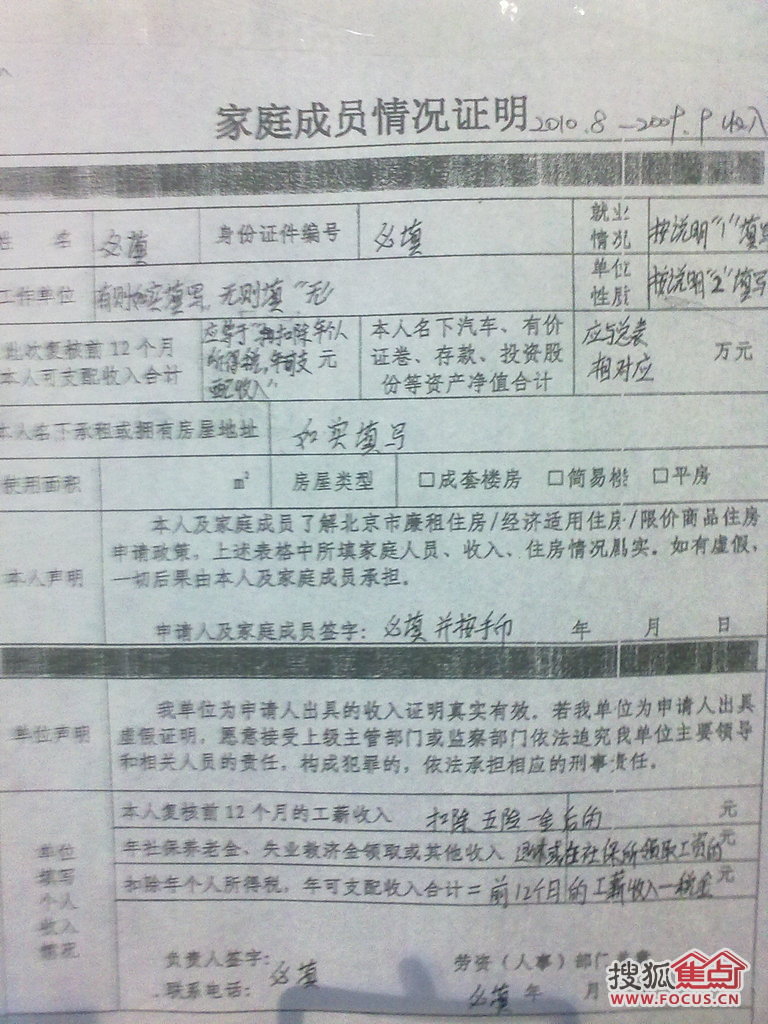 家庭成员情况证明 2010.8—2009.9收入
姓 名 必填 身份证件编号 必填 就业情况 按说明"1"填写
工作单位 有则如实填写，无则填"无" 单位性质 按说明"2"填写
此次复核前12个月本人可支配收入合计 应等于"扣除年个人所得税，年可支配收入" 元 本人名下汽车、有价证卷、存款、投资股份等资产净值合计 应与总表相对应 万元
本人名下承租或拥有房屋地址 如实填写
使用面积 m² 房屋类型 □成套楼房 □简易楼 □平房
本人声明
本人及家庭成员了解北京市廉租住房/经济适用住房/限价商品住房
申请政策。上述表格中所填家庭人员、收入、住房情况属实。如有虚假，
一切后果由本人及家庭成员承担。
申请人及家庭成员签字：必填 并按手印 年 月 日
单位声明
我单位为申请人出具的收入证明真实有效。若我单位为申请人出具
虚假证明，愿意接受上级主管部门或监察部门依法追究我单位主要领导
和相关人员的责任。构成犯罪的，依法承担相应的刑事责任。
单位填写个人收入情况
本人复核前12个月的工薪收入 扣除五险一金后的 元
年社保养老金、失业救济金领取或其他收入 退休或在社保所领取工资的 元
扣除年个人所得税，年可支配收入合计=前12个月的工薪收入—税金 元
负责人签字： 劳资（人事）部门
联系电话： 必填 必填 年 月
搜狐焦点
WWW.FOCUS.CN